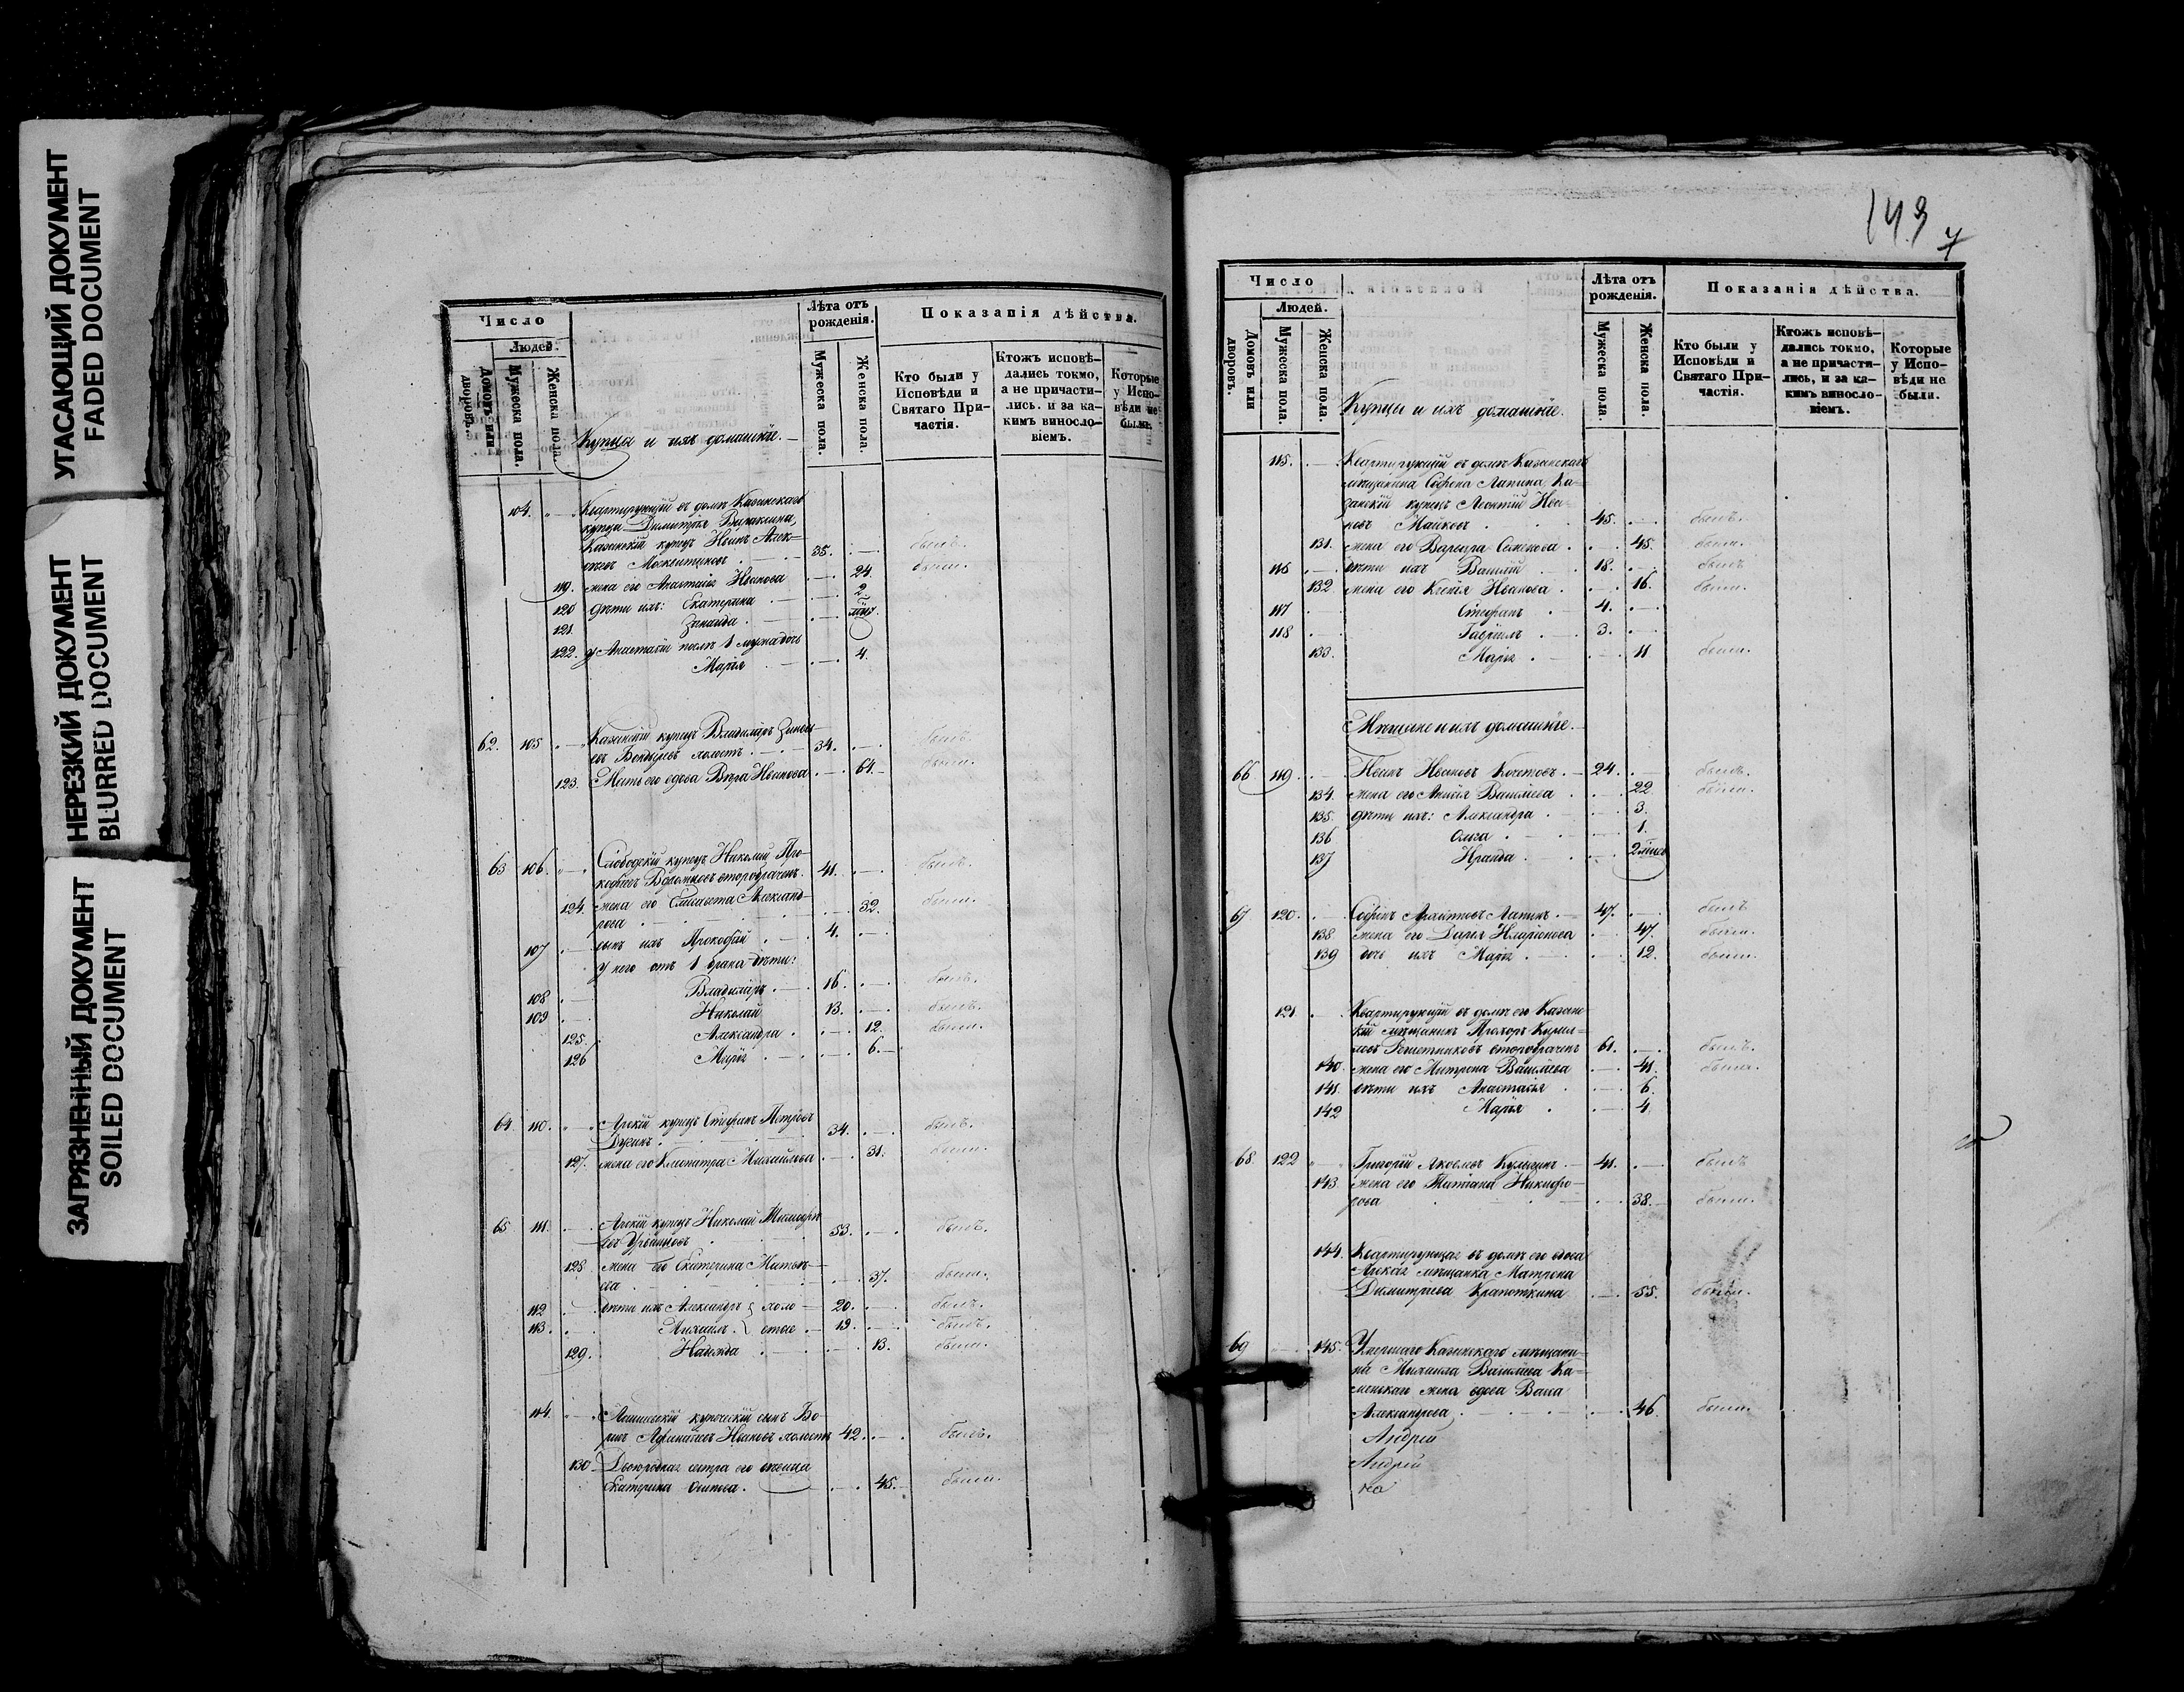 УГАСАЮЩИЙ ДОКУМЕНТ
FADED DOCUMENT
НЕРЕЗКИЙ ДОКУМЕНТ
BLURRED DOCUMENT
ЗАГРЯЗНЕННЫЙ ДОКУМЕНТ
SOILED DOCUMENT
Число
Людей.
Домовъ или дворовъ.
Мужеска пола.
Женска пола.
Купцы и ихъ домашніе.
Лѣта отъ рожденія.
Мужеска пола.
Женска пола.
Показанія дѣйства.
Кто были у Исповѣди и Святаго Причастія.
Ктожъ исповѣдались токмо, а не причастились. и за какимъ винословіемъ.
Которые у Исповѣди не были.
104. Квартирующій въ домѣ Казанскаго
купца Димитрія
Казанскій купецъ Иванъ Алек-
35. былъ.
119. жена его Анастасія Иванова 24. была.
120 дѣти ихъ: Екатерина 2
121. Зинаида
122. у Анастасіи послѣ 1 мужа дочь
Марія 4.
62. 105 Казанскій купецъ Владиміръ
холостъ 34. былъ.
123. Мать его вдова Вѣра Иванова 64. была.
63 106 Слободскій купецъ Николай Про-
кофіевъ второбраченъ. 41. былъ.
124. жена его Елисавета Александ-
рова 32. была.
107 сынъ ихъ Прокофій 4.
у него отъ 1 брака дѣти:
108 Владиміръ 16. былъ.
109 Николай 13. былъ.
125. Александра 12. была.
126 Марія 6.
64 110. Арскій купецъ Стефанъ Петровъ
34. былъ.
127. жена его Клеопатра Михайлова 31. была.
65 111. Арскій купецъ Николай
53. былъ.
128. жена его Екатерина Матвѣ-
ева 37. была.
112 дѣти ихъ Александръ холо- 20. былъ.
113. Михаилъ стые 19. былъ.
129. Надежда 13. была.
114. купеческій сынъ Бо-
рисъ Ивановъ холостъ 42. былъ.
130 Двоюродная сестра его дѣвица
Екатерина Осипова. 45. была.
143
7
Число
Людей.
Домовъ или дворовъ.
Мужеска пола.
Женска пола.
Купцы и ихъ домашніе.
Лѣта отъ рожденія.
Мужеска пола.
Женска пола.
Показанія дѣйства.
Кто были у Исповѣди и Святаго Причастія.
Ктожъ исповѣдались токмо, а не причастились, и за какимъ винословіемъ.
Которые у Исповѣди не были.
115. Квартирующій въ домѣ Казанскаго
мѣщанина Софона Лапина Ка-
занскій купецъ Леонтій Ива-
новъ Майковъ 45. былъ.
131. жена его Варвара Семенова 45. была.
116 дѣти ихъ Василій 18. былъ
132 жена его Ксенія Иванова 16. была.
117 Стефанъ 4.
118 Гавріилъ 3.
133. Марія 11 была.
Мѣщане и ихъ домашніе.
66 119. Иванъ Ивановъ Кочетовъ. 24. былъ.
134. жена его Анисія Васильева 22 была.
135. дѣти ихъ: Александра 3.
136 Ольга 1.
137 Ираида 2 мѣс.
67 120. Софонъ Архиповъ Лапинъ. 47. былъ
138 жена его Дарья Иларіонова 47. была.
139 дочь ихъ Марія 12. была.
121. Квартирующій въ домѣ его Казан-
скій мѣщанинъ Прохоръ Кирил-
ловъ Решетниковъ второбраченъ 61. былъ.
140. жена его Матрона Васильева 41. была.
141. дѣти ихъ Анастасья 6.
142 Марья 4.
68. 122 Григорій Яковлевъ Кулыгинъ 41. былъ
143. жена его Татіана Никифо-
рова 38. была.
144. Квартирующая въ домѣ его вдова
Арская мѣщанка Матрона
Димитріева Крапоткина 55. была.
69 145. Умершаго Казанскаго мѣщани-
на Михаила Васильева Ка-
менскаго жена вдова Васса
Александрова 46. была.
Андрей
Андрей
на